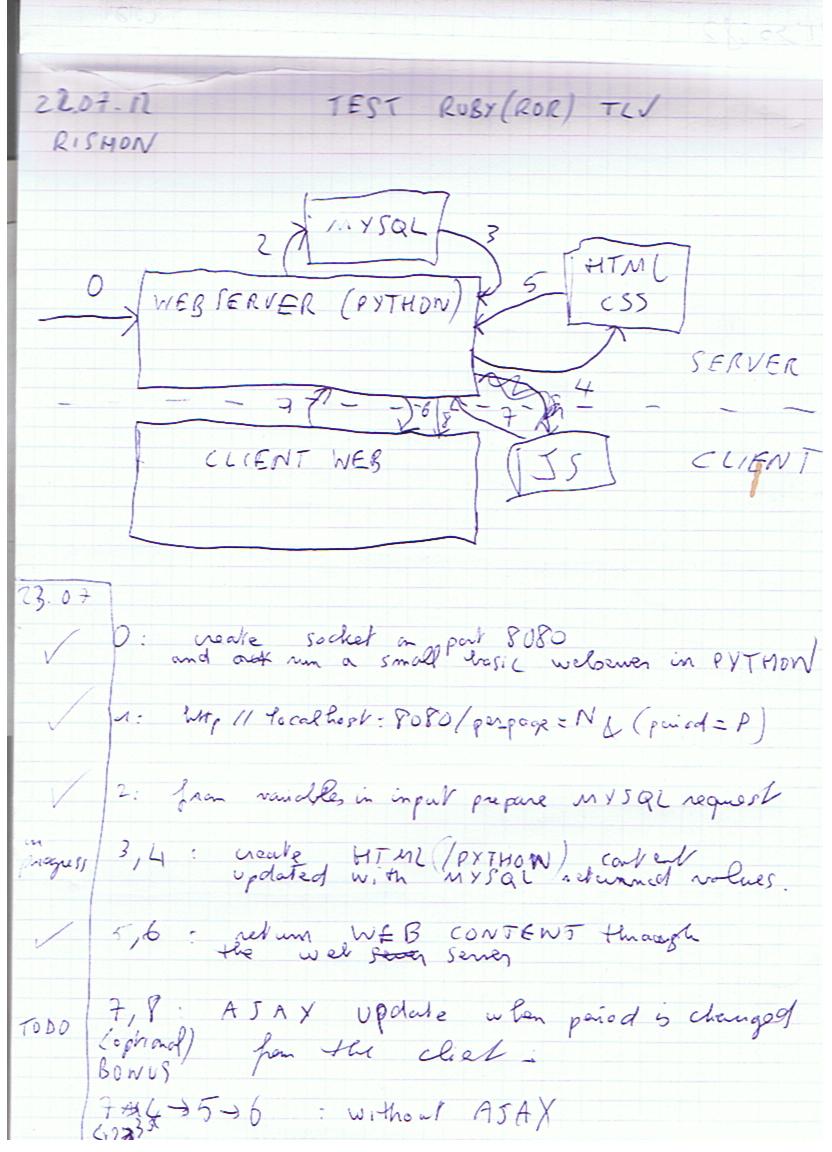 22.07.12 TEST RUBY(ROR) TLV
RISHON
MYSQL
2 3
HTML
CSS
0 5
WEBSERVER (PYTHON)
SERVER
4
7 6 8 7
CLIENT WEB
JS
CLIENT
23.07
0: create socket on port 8080
and run a small basic webserver in PYTHON
1: http // localhost: 8080/perpage=N & (period=P)
2: from variables in input prepare MYSQL request
in progress
3,4 : create HTML (/PYTHON) content
updated with MYSQL returned values.
5,6 : return WEB CONTENT through
the web server
TODO
7,8 : AJAX update when period is changed
(optional) from the client.
BONUS
7→4→5→6 : without AJAX